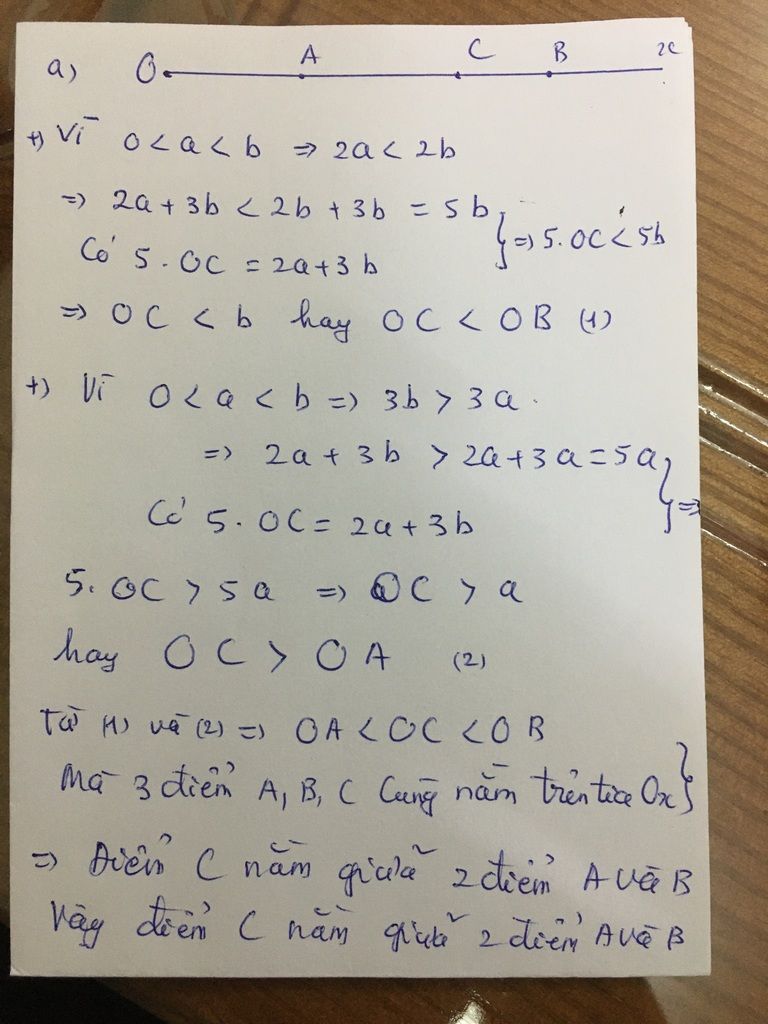 a) O A C B x
+) Vì 0 < a < b => 2a < 2b
=> 2a + 3b < 2b + 3b = 5b
Có 5. OC = 2a + 3b } => 5. OC < 5b
=> OC < b hay OC < OB (1)
+) Vì 0 < a < b => 3b > 3a.
=> 2a + 3b > 2a + 3a = 5a
Có 5. OC = 2a + 3b } =>
5. OC > 5a => OC > a
hay OC > OA (2)
Từ (1) và (2) => OA < OC < OB
Mà 3 điểm A, B, C cùng nằm trên tia Ox }
=> Điểm C nằm giữa 2 điểm A và B
Vậy điểm C nằm giữa 2 điểm A và B